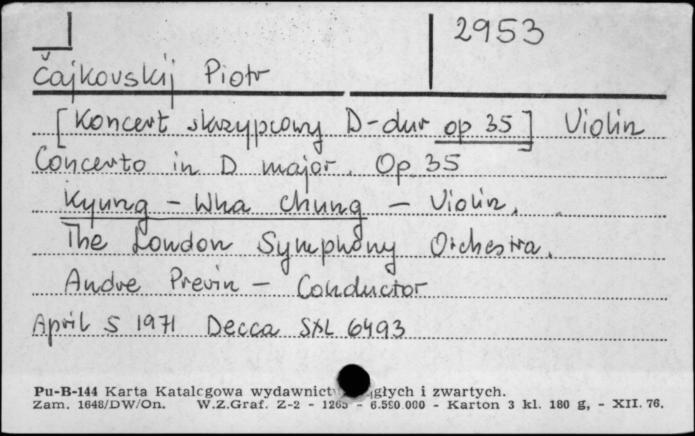 2953
Čajkovskij Piotr
[Koncert skrzypcowy D-dur op 35] Violin
Concerto in D major. Op. 35
Kyung - Wha Chung - Violin.
The London Symphony Orchestra.
Andre Previn - Conductor
April 5 1971 Decca SXL 6493
Pu-B-144 Karta Katalogowa wydawnictw ciągłych i zwartych.
Zam. 1648/DW/On. W.Z.Graf. Z-2 - 1265 - 6.590.000 - Karton 3 kl. 180 g, - XII. 76.